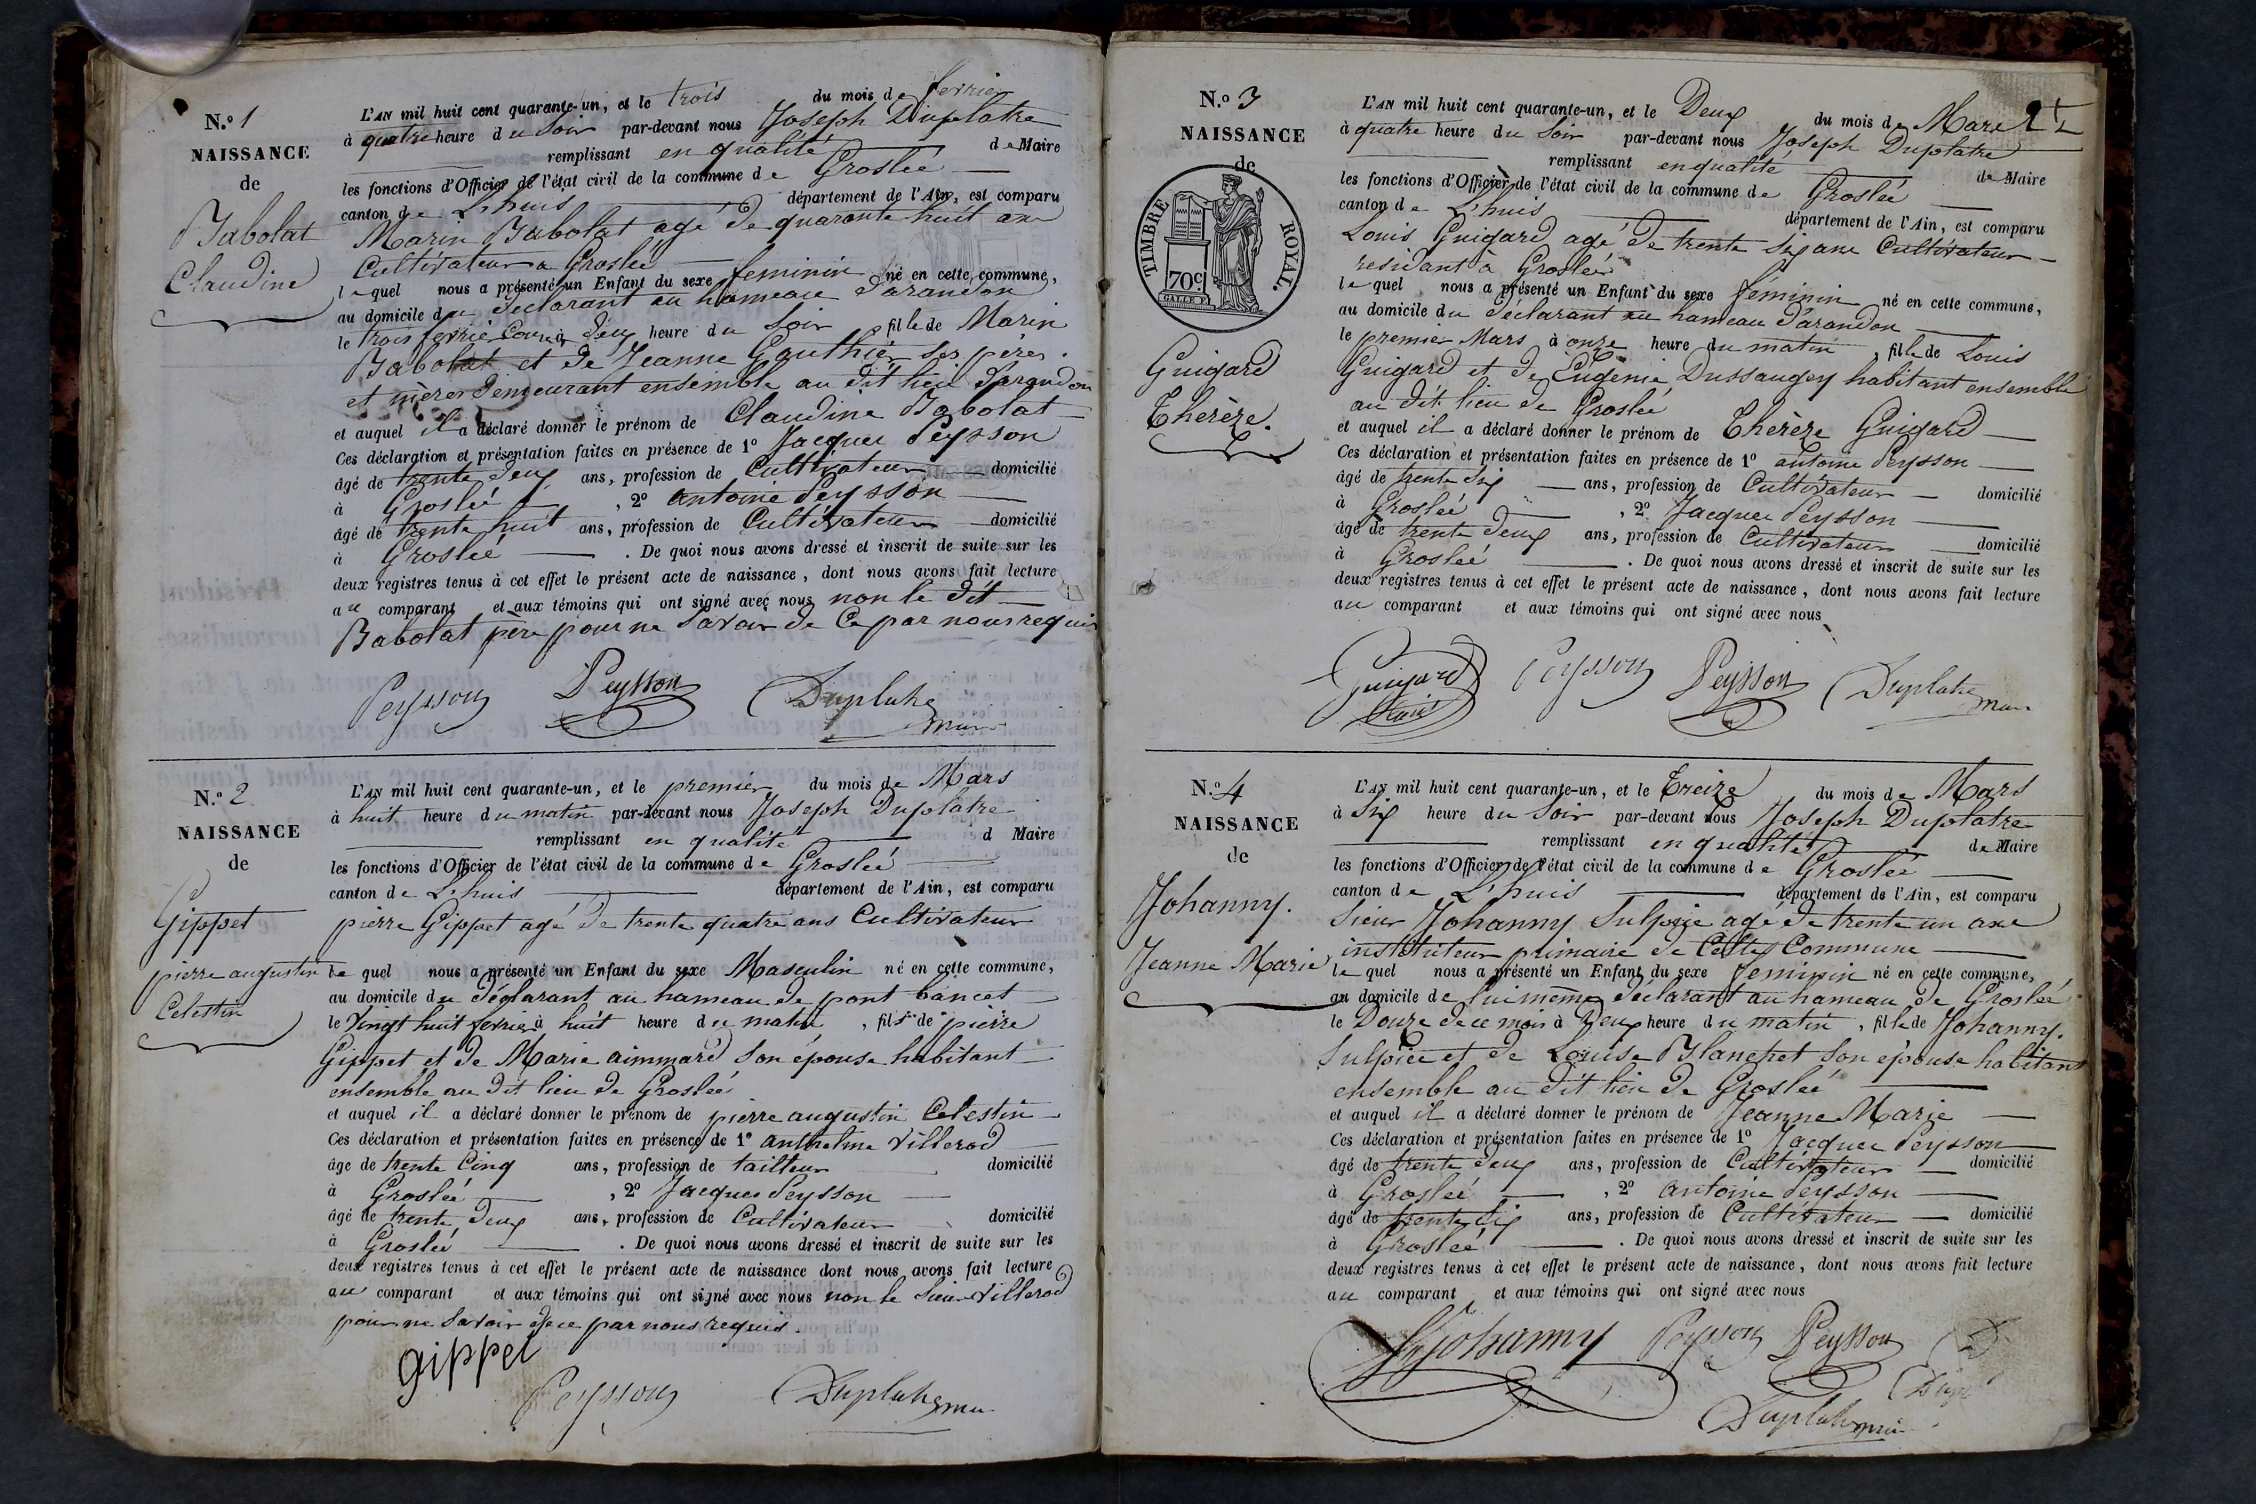 N.º 1
NAISSANCE
de
Babolat
Claudine
L'AN mil huit cent quarante-un, et le trois du mois de fevrier
à quatre heure du soir par-devant nous Joseph Duplatre
remplissant en qualité de Maire
les fonctions d'Officier de l'état civil de la commune de Groslée
canton de L'huis département de l'Ain, est comparu
Marin Babolat agé de quarante huit ans
Cultivateur a Groslée
lequel nous a présenté un Enfant du sexe feminin né en cette commune,
au domicile du déclarant au hameau d'arandon
le trois fevrier à deux heure du soir fille de Marin
Babolat et de Jeanne Gauthier ses pères
et mères demeurant ensemble au dit lieu d'arandon
et auquel il a déclaré donner le prénom de Claudine Babolat
Ces déclaration et présentation faites en présence de 1º Jacques Peysson
âgé de trente deux ans, profession de Cultivateur domicilié
à Groslée , 2º antoine Peysson
âgé de trente huit ans, profession de Cultivateur domicilié
à Groslée . De quoi nous avons dressé et inscrit de suite sur les
deux registres tenus à cet effet le présent acte de naissance, dont nous avons fait lecture
au comparant et aux témoins qui ont signé avec nous non le dit
Babolat père pour ne savoir de ce par nous requis
Peysson Peysson Duplatre maire
N.º 2
NAISSANCE
de
Gippet
pierre augustin
Celestin
L'AN mil huit cent quarante-un, et le premier du mois de Mars
à huit heure du matin par-devant nous Joseph Duplatre
remplissant en qualité d Maire
les fonctions d'Officier de l'état civil de la commune de Groslée
canton de L'huis département de l'Ain, est comparu
pierre Gippet agé de trente quatre ans Cultivateur
le quel nous a présenté un Enfant du sexe Masculin né en cette commune,
au domicile du déclarant au hameau de pont bancet
le Vingt huit fevrier à huit heure du matin , fils de pierre
Gippet et de Marie aimmard son épouse habitant
ensemble au dit lieu de Groslée
et auquel il a déclaré donner le prénom de pierre augustin Celestin
Ces déclaration et présentation faites en présence de 1º anthelme Villerod
âge de trente Cinq ans, profession de tailleur domicilié
à Groslée , 2º Jacques Peysson
âgé de trente deux ans, profession de Cultivateur domicilié
à Groslée . De quoi nous avons dressé et inscrit de suite sur les
deux registres tenus à cet effet le présent acte de naissance dont nous avons fait lecture
au comparant et aux témoins qui ont signé avec nous non le sieur Villerod
pour ne savoir de ce par nous requis.
gippet
Peysson Duplatre
N.º 3
NAISSANCE
de
TIMBRE ROYAL.
70c
Guigard
Thérèze.
L'AN mil huit cent quarante-un, et le Deux du mois de Mars
à quatre heure du soir par-devant nous Joseph Duplatre
remplissant en qualité de Maire
les fonctions d'Officier de l'état civil de la commune de Groslée
canton de L'huis département de l'Ain, est comparu
Louis Guigard agé de trente six ans Cultivateur
residant à Groslée
le quel nous a présenté un Enfant du sexe féminin né en cette commune,
au domicile du déclarant au hameau d'arandon
le premier Mars à onze heure du matin , fille de Louis
Guigard et de Eugenie Dussaugey habitant ensemble
au dit lieu de Groslée
et auquel il a déclaré donner le prénom de Thérèze Guigard
Ces déclaration et présentation faites en présence de 1º antoine Peysson
âgé de trente six ans, profession de Cultivateur domicilié
à Groslée , 2º Jacques Peysson
âgé de trente deux ans, profession de Cultivateur domicilié
à Groslée . De quoi nous avons dressé et inscrit de suite sur les
deux registres tenus à cet effet le présent acte de naissance, dont nous avons fait lecture
au comparant et aux témoins qui ont signé avec nous
Guigard Louis Peysson Peysson Duplatre maire
N.º 4
NAISSANCE
de
Johanny.
Jeanne Marie
L'AN mil huit cent quarante-un, et le treize du mois de Mars
à six heure du soir par-devant nous Joseph Duplatre
remplissant en qualité de Maire
les fonctions d'Officier de l'état civil de la commune de Groslée
canton de L'huis département de l'Ain, est comparu
Sieur Johanny Sulpice agé de trente un ans
instituteur primaire de Cette Commune
le quel nous a présenté un Enfant du sexe feminin né en cette commune,
au domicile de lui même déclarant au hameau de Groslée
le Douze de ce mois à deux heure du matin , fille de Johanny.
Sulpice et de Louise Blanchet son épouse habitant
ensemble au dit lieu de Groslée
et auquel il a déclaré donner le prénom de Jeanne Marie
Ces déclaration et présentation faites en présence de 1º Jacques Peysson
âgé de trente deux ans, profession de Cultivateur domicilié
à Groslée , 2º antoine Peysson
âgé de trente six ans, profession de Cultivateur domicilié
à Groslée . De quoi nous avons dressé et inscrit de suite sur les
deux registres tenus à cet effet le présent acte de naissance, dont nous avons fait lecture
au comparant et aux témoins qui ont signé avec nous
Johanny Peysson Peysson
Dupl
Duplatre maire